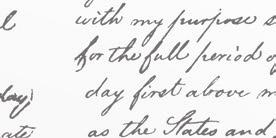 l with my purpose s
for the full period of
day) day first above m
ate as the States and